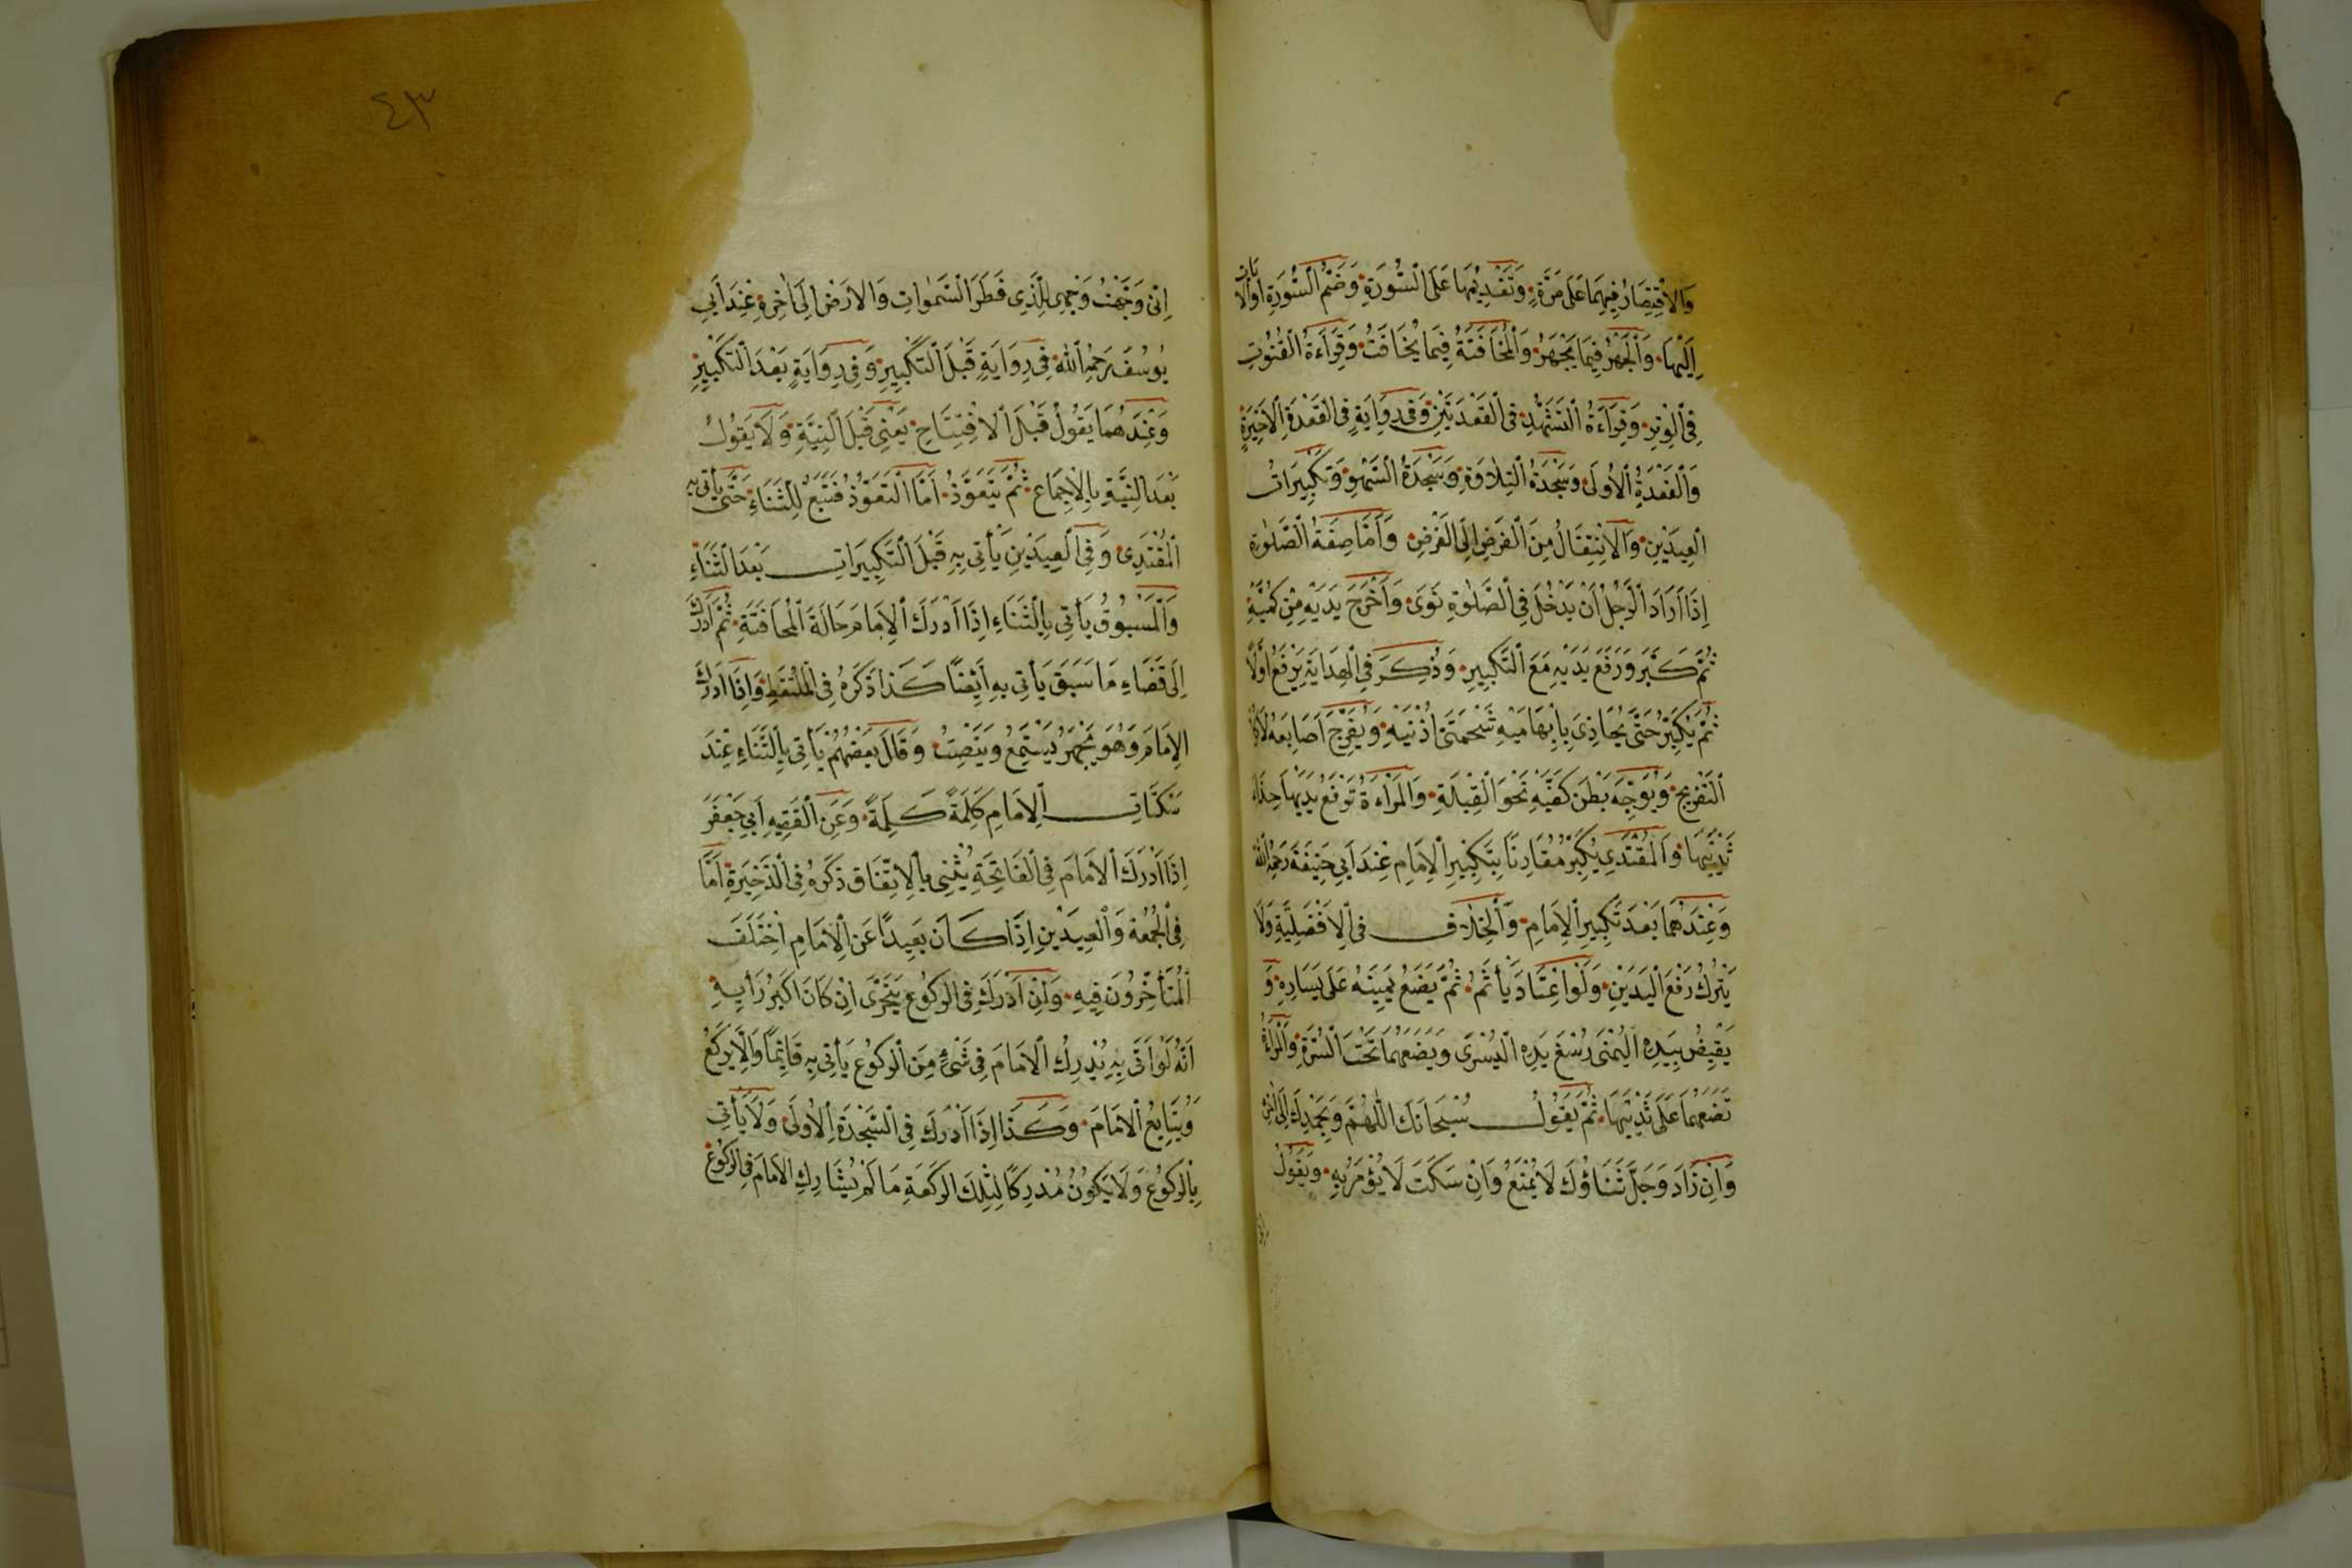 وَالْاِقْتِصَارُ فِيهِمَا عَلَى مَرَّةٍ وَتَقْدِيْمُهَا عَلَى السُّوْرَةِ وَضَمُّ السُّوْرَةِ اَوِالْاٰيَاتِ
اِلَيْهَا وَالْجَهْرُ فِيمَا يَجْهَرُ وَالْمُخَافَتَةُ فِيمَا يُخَافَتُ وَقِرَاءَةُ الْقُنُوْتِ
فِي الْوِتْرِ وَقِرَاءَةُ التَّشَهُّدِ فِي الْقَعْدَتَيْنِ وَفِي رِوَايَةٍ فِي الْقَعْدَةِ الْاَخِيْرَةِ
وَالْقَعْدَةُ الْاُولَى وَسَجْدَةُ التِّلَاوَةِ وَسَجْدَةُ السَّهْوِ وَتَكْبِيْرَاتُ
الْعِيدَيْنِ وَالْاِنْتِقَالُ مِنَ الْفَرْضِ اِلَى الْفَرْضِ وَاَمَّا صِفَةُ الصَّلٰوةِ
اِذَا اَرَادَ الرَّجُلُ اَنْ يَدْخُلَ فِي الصَّلٰوةِ نَوَى وَاَخْرَجَ يَدَيْهِ مِنْ كُمَّيْهِ
ثُمَّ كَبَّرَ وَرَفَعَ يَدَيْهِ مَعَ التَّكْبِيرِ وَذُكِرَ فِي الْهِدَايَةِ يَرْفَعُ اَوَّلًا
ثُمَّ يُكَبِّرُ حَتَّى يُحَاذِيَ بِاِبْهَامَيْهِ شَحْمَتَيْ اُذُنَيْهِ وَيُفَرِّجُ اَصَابِعَهُ لَاكُلَّ
التَّفْرِيجِ وَيُوَجِّهُ بَطْنَ كَفَّيْهِ نَحْوَ الْقِبْلَةِ وَالْمَرْاَةُ تَرْفَعُ يَدَيْهَا حِذَاءَ
ثَدْيَيْهَا وَالْمُقْتَدِي يُكَبِّرُ مُقَارِنًا بِتَكْبِيْرِ الْاِمَامِ عِنْدَ اَبِي حَنِيْفَةَ رَحِمَهُ اللّٰهُ
وَعِنْدَهُمَا بَعْدَ تَكْبِيرِ الْاِمَامِ وَالْخِلَافُ فِي الْاَفْضَلِيَّةِ وَلَا
يَتْرُكُ رَفْعَ الْيَدَيْنِ وَلَوِ اعْتَادَ يَأْثَمُ ثُمَّ يَضَعُ يَمِيْنَهُ عَلَى يَسَارِهِ وَ
يَقْبِضُ بِيَدِهِ الْيُمْنَى رُسْغَ يَدِهِ الْيُسْرَى وَيَضَعُهُمَا تَحْتَ السُّرَّةِ وَالْمَرْاَةُ
تَضَعُهُمَا عَلَى ثَدْيَيْهَا ثُمَّ يَقُولُ سُبْحَانَكَ اللّٰهُمَّ وَبِحَمْدِكَ اِلَى اٰخِرِهِ
وَاِنْ زَادَ وَجَلَّ ثَنَاؤُكَ لَا يُمْنَعُ وَاِنْ سَكَتَ لَا يُؤْمَرُ بِهِ وَيَقُولُ
اِنّي
٤٣
اِنِّي وَجَّهْتُ وَجْهِيَ لِلَّذِي فَطَرَ السَّمٰوَاتِ وَالْاَرْضَ اِلَى اٰخِرِهِ عِنْدَ اَبِي
يُوسُفَ رَحِمَهُ اللّٰهُ فِي رِوَايَةٍ قَبْلَ التَّكْبِيرِ وَفِي رِوَايَةٍ بَعْدَ التَّكْبِيْرِ
وَعِنْدَهُمَا يَقُولُ قَبْلَ الْاِفْتِتَاحِ يَعْنِي قَبْلَ النِّيَّةِ وَلَا يَقُوْلُ
بَعْدَ النِّيَّةِ بِالْاِجْمَاعِ ثُمَّ يَتَعَوَّذُ اَمَّا التَّعَوُّذُ فَتَبَعٌ لِلثَّنَاءِ حَتَّى يَأْتِيَ بِهِ
الْمُقْتَدِي وَفِي الْعِيدَيْنِ يَأْتِي بِهِ قَبْلَ التَّكْبِيْرَاتِ بَعْدَ الثَّنَاءِ
وَالْمَسْبُوْقُ يَأْتِي بِالثَّنَاءِ اِذَا اَدْرَكَ الْاِمَامَ حَالَةَ الْمُخَافَتَةِ ثُمَّ اَدْرَكَ
اِلَى قَضَاءِ مَا سَبَقَ يَأْتِي بِهِ اَيْضًا كَذَا ذَكَرَهُ فِي الْمُلْتَقَطِ وَاِذَا اَدْرَكَ
الْاِمَامَ وَهُوَ يَجْهَرُ يَسْتَمِعُ وَيَنْصِتُ وَقَالَ بَعْضُهُمْ يَأْتِي بِالثَّنَاءِ عِنْدَ
سَكَتَاتِ الْاِمَامِ كَلِمَةً كَلِمَةً وَعَنِ الْفَقِيهِ اَبِي جَعْفَرَ
اِذَا اَدْرَكَ الْاِمَامَ فِي الْفَاتِحَةِ يُثْنِي بِالْاِتِّفَاقِ ذَكَرَهُ فِي الذَّخِيرَةِ اَمَّا
فِي الْجُمُعَةِ وَالْعِيدَيْنِ اِذَا كَانَ بَعِيدًا عَنِ الْاِمَامِ اخْتَلَفَ
الْمُتَأَخِّرُونَ فِيهِ وَاِنْ اَدْرَكَ فِي الرُّكُوعِ يَتَحَرَّى اِنْ كَانَ اَكْبَرُ رَأْيِهِ
اَنَّهُ لَوْ اَتَى بِهِ يُدْرِكُ الْاِمَامَ فِي شَيْءٍ مِنَ الرُّكُوعِ يَأْتِي بِهِ قَائِمًا وَاِلَّا يَرْكَعُ
وَيُتَابِعُ الْاِمَامَ وَكَذَا اِذَا اَدْرَكَ فِي السَّجْدَةِ الْاُولَى وَلَا يَأْتِي
بِالرُّكُوعِ وَلَا يَكُونُ مُدْرِكًا لِتِلْكَ الرَّكْعَةِ مَا لَمْ يُشَارِكِ الْاِمَامَ فِي الرُّكُوعِ